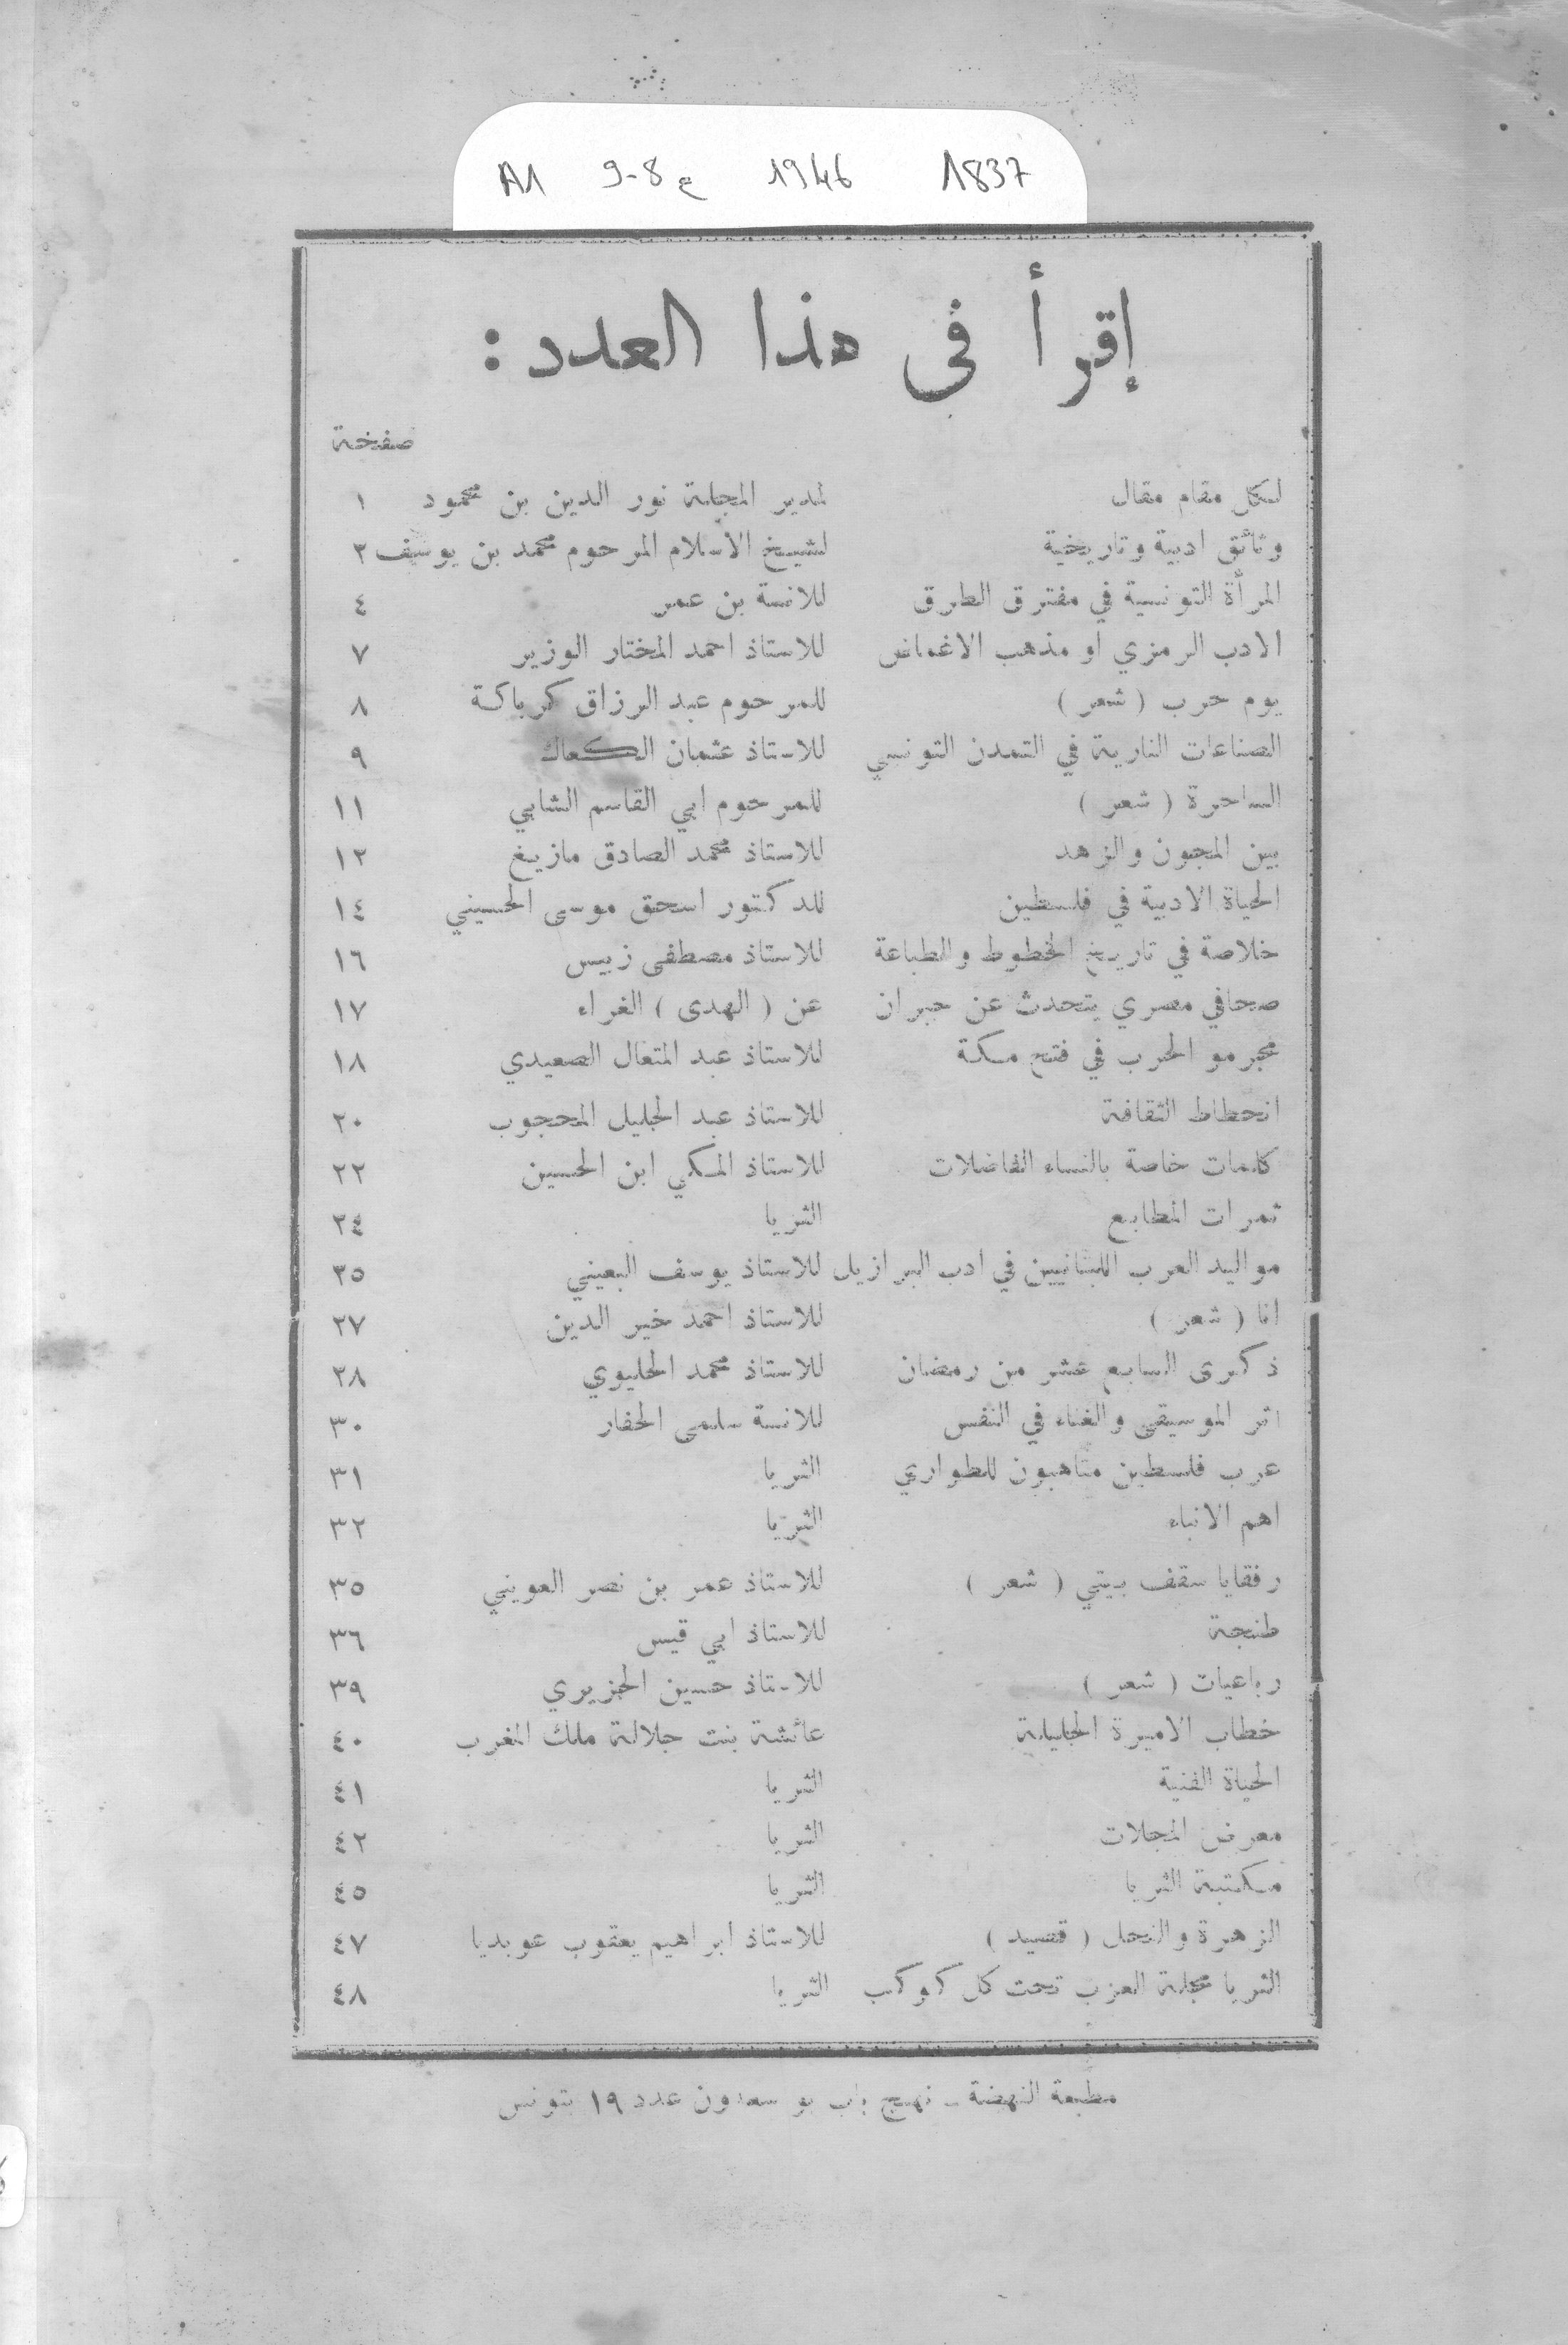 1837 1946 ع 8-9 A1
إقرأ في هذا العدد :
صفحة
لكل مقام مقال لمدير المجلة نور الدين بن محمود ١
وثائق ادبية وتاريخية لشيخ الأسلام المرحوم محمد بن يوسف ٣
المرأة التونسية في مفترق الطرق للانسة بن عمر ٤
الادب الرمزي او مذهب الاغماض للاستاذ احمد المختار الوزير ٧
يوم حرب ( شعر ) للمرحوم عبد الرزاق كرباكة ٨
الصناعات النارية في التمدن التونسي للاستاذ عثمان الكعاك ٩
الساحرة ( شعر ) للمرحوم ابي القاسم الشابي ١١
بين المجون والزهد للاستاذ محمد الصادق مازيغ ١٢
الحياة الادبية في فلسطين للدكتور اسحق موسى الحسيني ١٤
خلاصة في تاريخ الخطوط والطباعة للاستاذ مصطفى زبيس ١٦
صحافي مصري يتحدث عن جبران عن ( الهدى ) الغراء ١٧
مجرمو الحرب في فتح مكة للاستاذ عبد المتعال الصعيدي ١٨
انحطاط الثقافة للاستاذ عبد الجليل المحجوب ٢٠
كلمات خاصة بالنساء الفاضلات للاستاذ المكي ابن الحسين ٢٢
ثمرات المطابع الثريا ٢٤
مواليد العرب اللبنانيين في ادب البرازيل للاستاذ يوسف البعيني ٢٥
انا ( شعر ) للاستاذ احمد خير الدين ٢٧
ذكرى السابع عشر من رمضان للاستاذ محمد الحليوي ٢٨
اثر الموسيقى والغناء في النفس للانسة سلمى الحفار ٣٠
عرب فلسطين متاهبون للطواري الثريا ٣١
اهم الانباء الثريا ٣٢
رفقايا سقف بيتي ( شعر ) للاستاذ عمر بن نصر العويني ٣٥
طنجة للاستاذ ابي قيس ٣٦
رباعيات ( شعر ) للاستاذ حسين الجزيري ٣٩
خطاب الاميرة الجليلة عائشة بنت جلالة ملك المغرب ٤٠
الحياة الفنية الثريا ٤١
معرض المجلات الثريا ٤٢
مكتبة الثريا الثريا ٤٥
الزهرة والنحل ( قصيد ) للاستاذ ابراهيم يعقوب عوبديا ٤٧
الثريا مجلة العرب تحت كل كوكب الثريا ٤٨
مطبعة النهضة ــ نهج باب بو سعدون عدد ١٩ بتونس